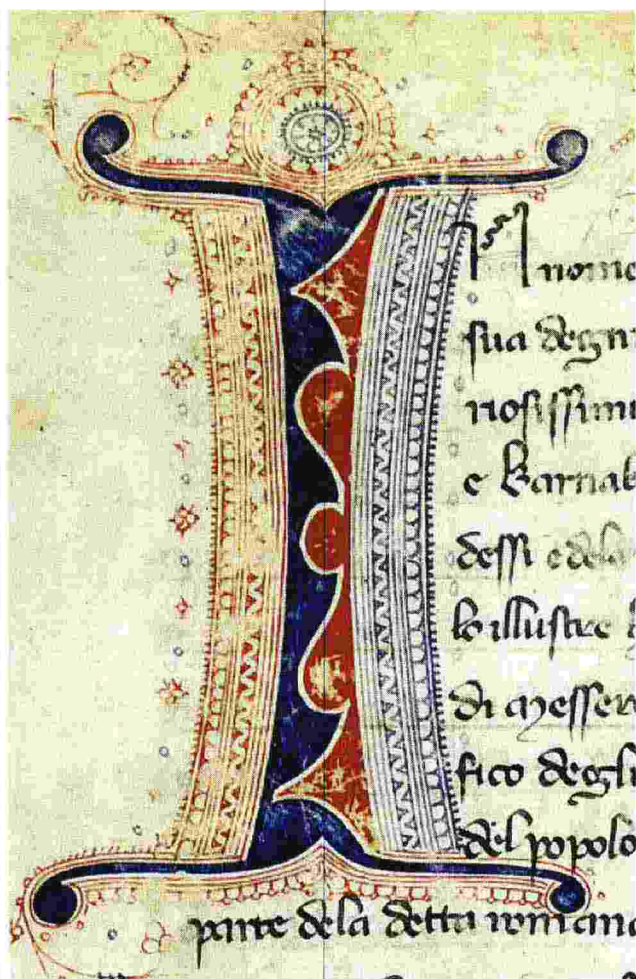 I
In nome
sua degni
nosissimi
e Barnab
dessi e dela
lo illustre
di messere
fico degli
del popolo
parte dela detta romana